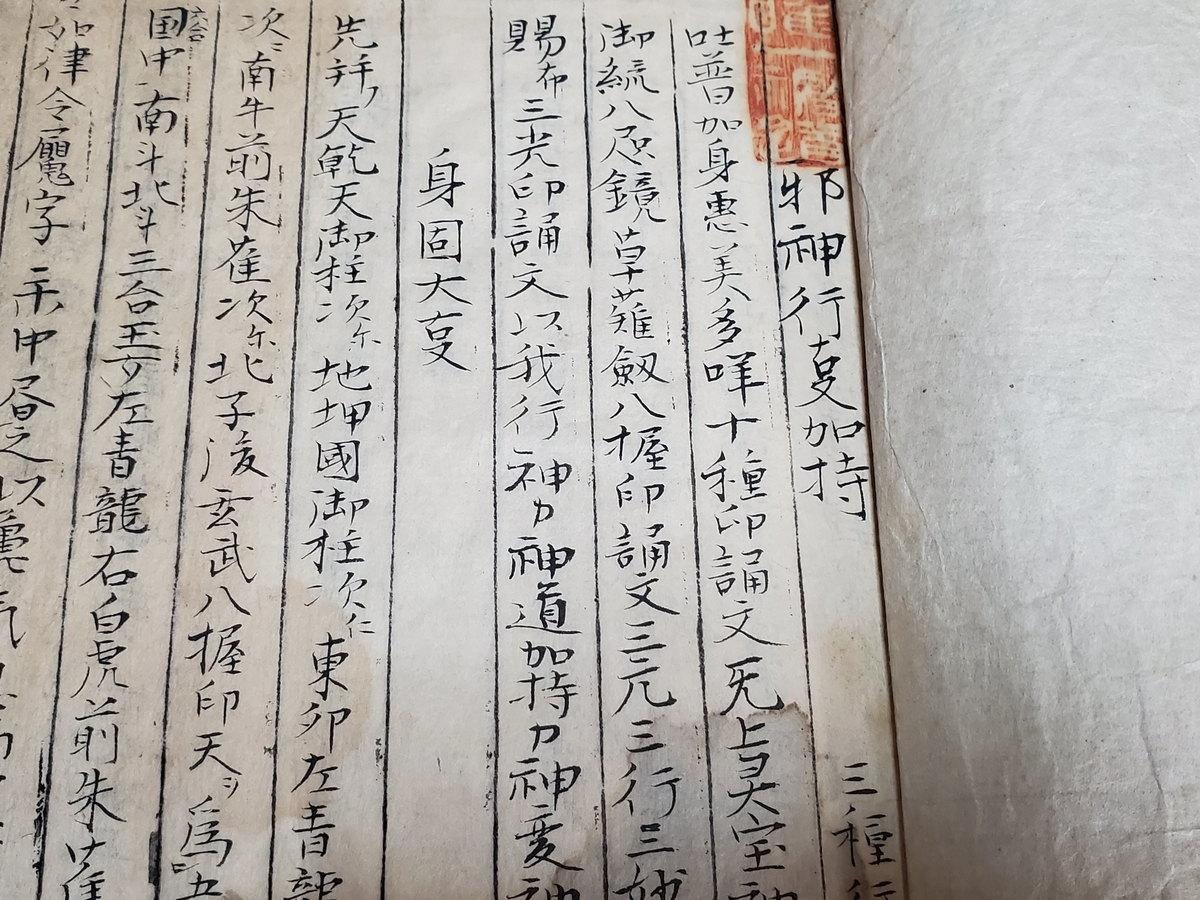 邪神行事加持 三種行
吐普加身恵美多咩十種印誦文无上灵宝神
御統八咫鏡草薙剱八握印誦文三元三行三妙
賜布三光印誦文以我行神力神道加持力神変神
身固大事
先拜ノ天乾天御柱次尓地坤國御柱次仁東卯左青龍
次ニ南午前朱雀次尓北子後玄武八握印天ヲ為五
国中南斗北斗三合左青龍右白虎前朱雀
如律令 字 示中